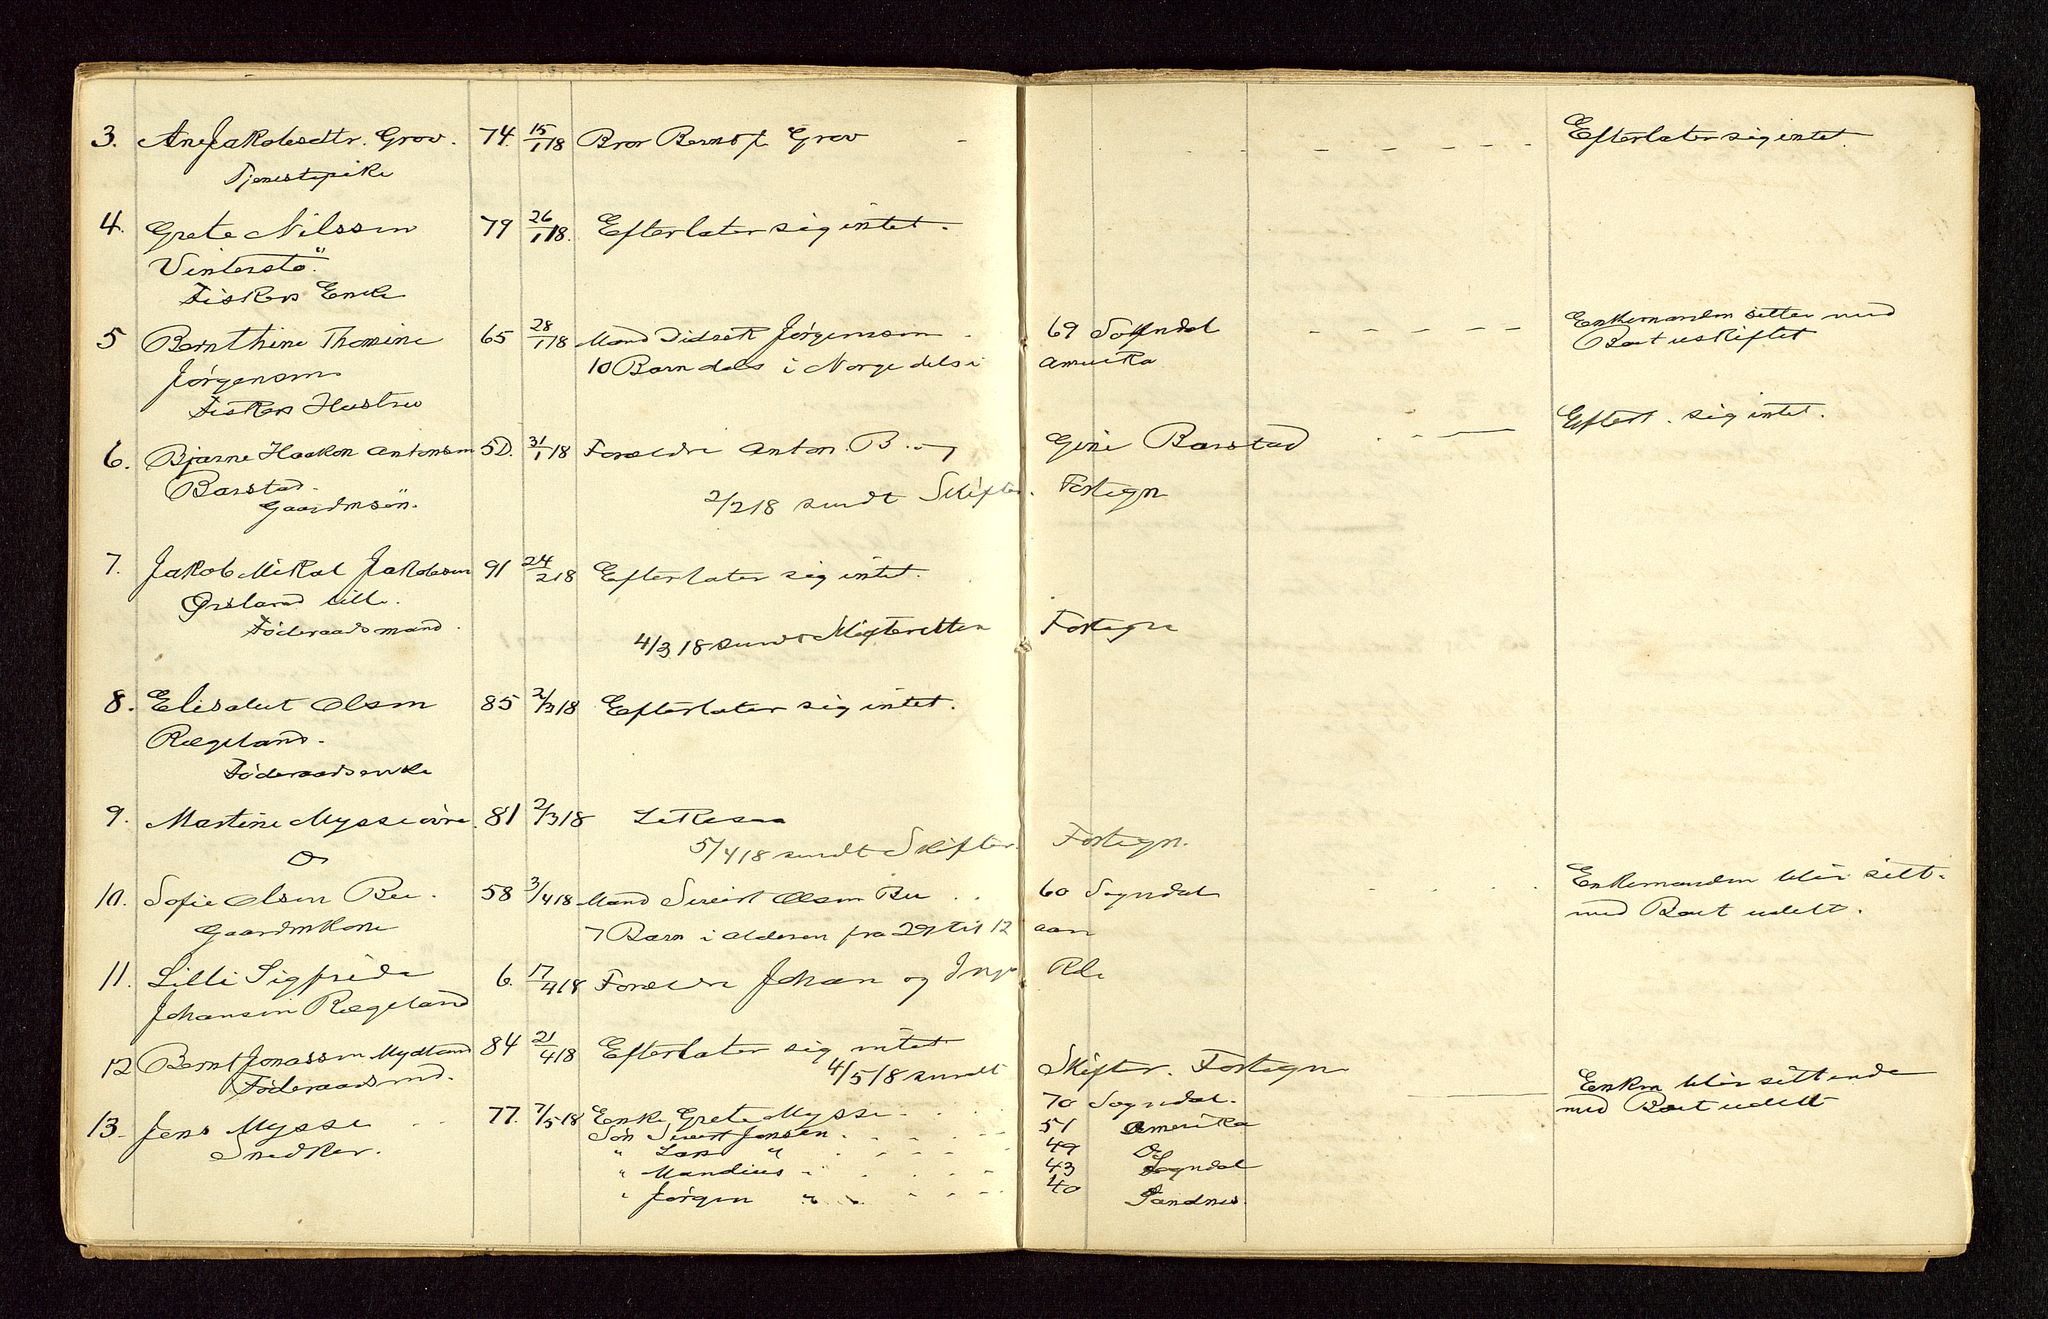 3. Ane Jakobsdtr. Grov. 74. 15/1 18 Bror Bernt J. Grov - - - - - - - Efterlater sig intet.
Tjenestepike
4. Grete Nilssen 79 26/1 18. Efterlater sig intet.
Vinterstö.
Fiskers Enke
5 Bernthine Thomine 65 28/1 18 Mand Didrik Jørgensen 69 Sokndal - - - - - Enkemanden sitter med
Jørgensen 10 Barn dels i Norge dels i Amerika Boet uskiftet
Fiskers Hustru
6. Bjarne Haakon Antonsen 5D. 31/1 18 Forældre Anton B. og Gine Barstad Efterl. sig intet.
Barstad.
Gaardmsön. 2/2 18 sendt Skifter. Fortegn
7. Jakob Mikal Jakobsen 91 24/2 18 Efterlater sig intet.
Ørsland lille.
Föderaadsmand. 4/3 18 sendt Skifteretten Fortegn
8. Elisabet Olsen 85 2/3 18 Efterlater sig intet.
Rægeland.
Föderaadsenke
9. Martine Mysse övre. 81 2/3 18 Likesaa
Do 5/4 18 sendt Skifter. Fortegn.
10. Sofie Olsen Bu. 58 3/4 18 Mand Sivert Olsen Bu 60 Sogndal Enkemanden blir sitt.
Gaardmkone 7 Barn i alderen fra 29 til 12 aar med Boet udelt.
11. Lilli Sigfride 6. 17/4 18 Forældre Johan og Inga Rl.
Johansen Rægeland
12 Bernt Jonassen Mydland 84 21/4 18 Efterlater sig intet
Föderaadsmd. 4/5 18 sendt Skifter. Fortegn
13. Jens Mysse 77. 7/5 18 Enke Grete Mysse 70 Sogndal. Enken blir sittende
Snedker. Sön Sivert Jensen 51 Amerika med Boet udelt
" Lars " 49 Do
" Mandius " 43 Sogndal
" Jørgen " 40 Sandnes.